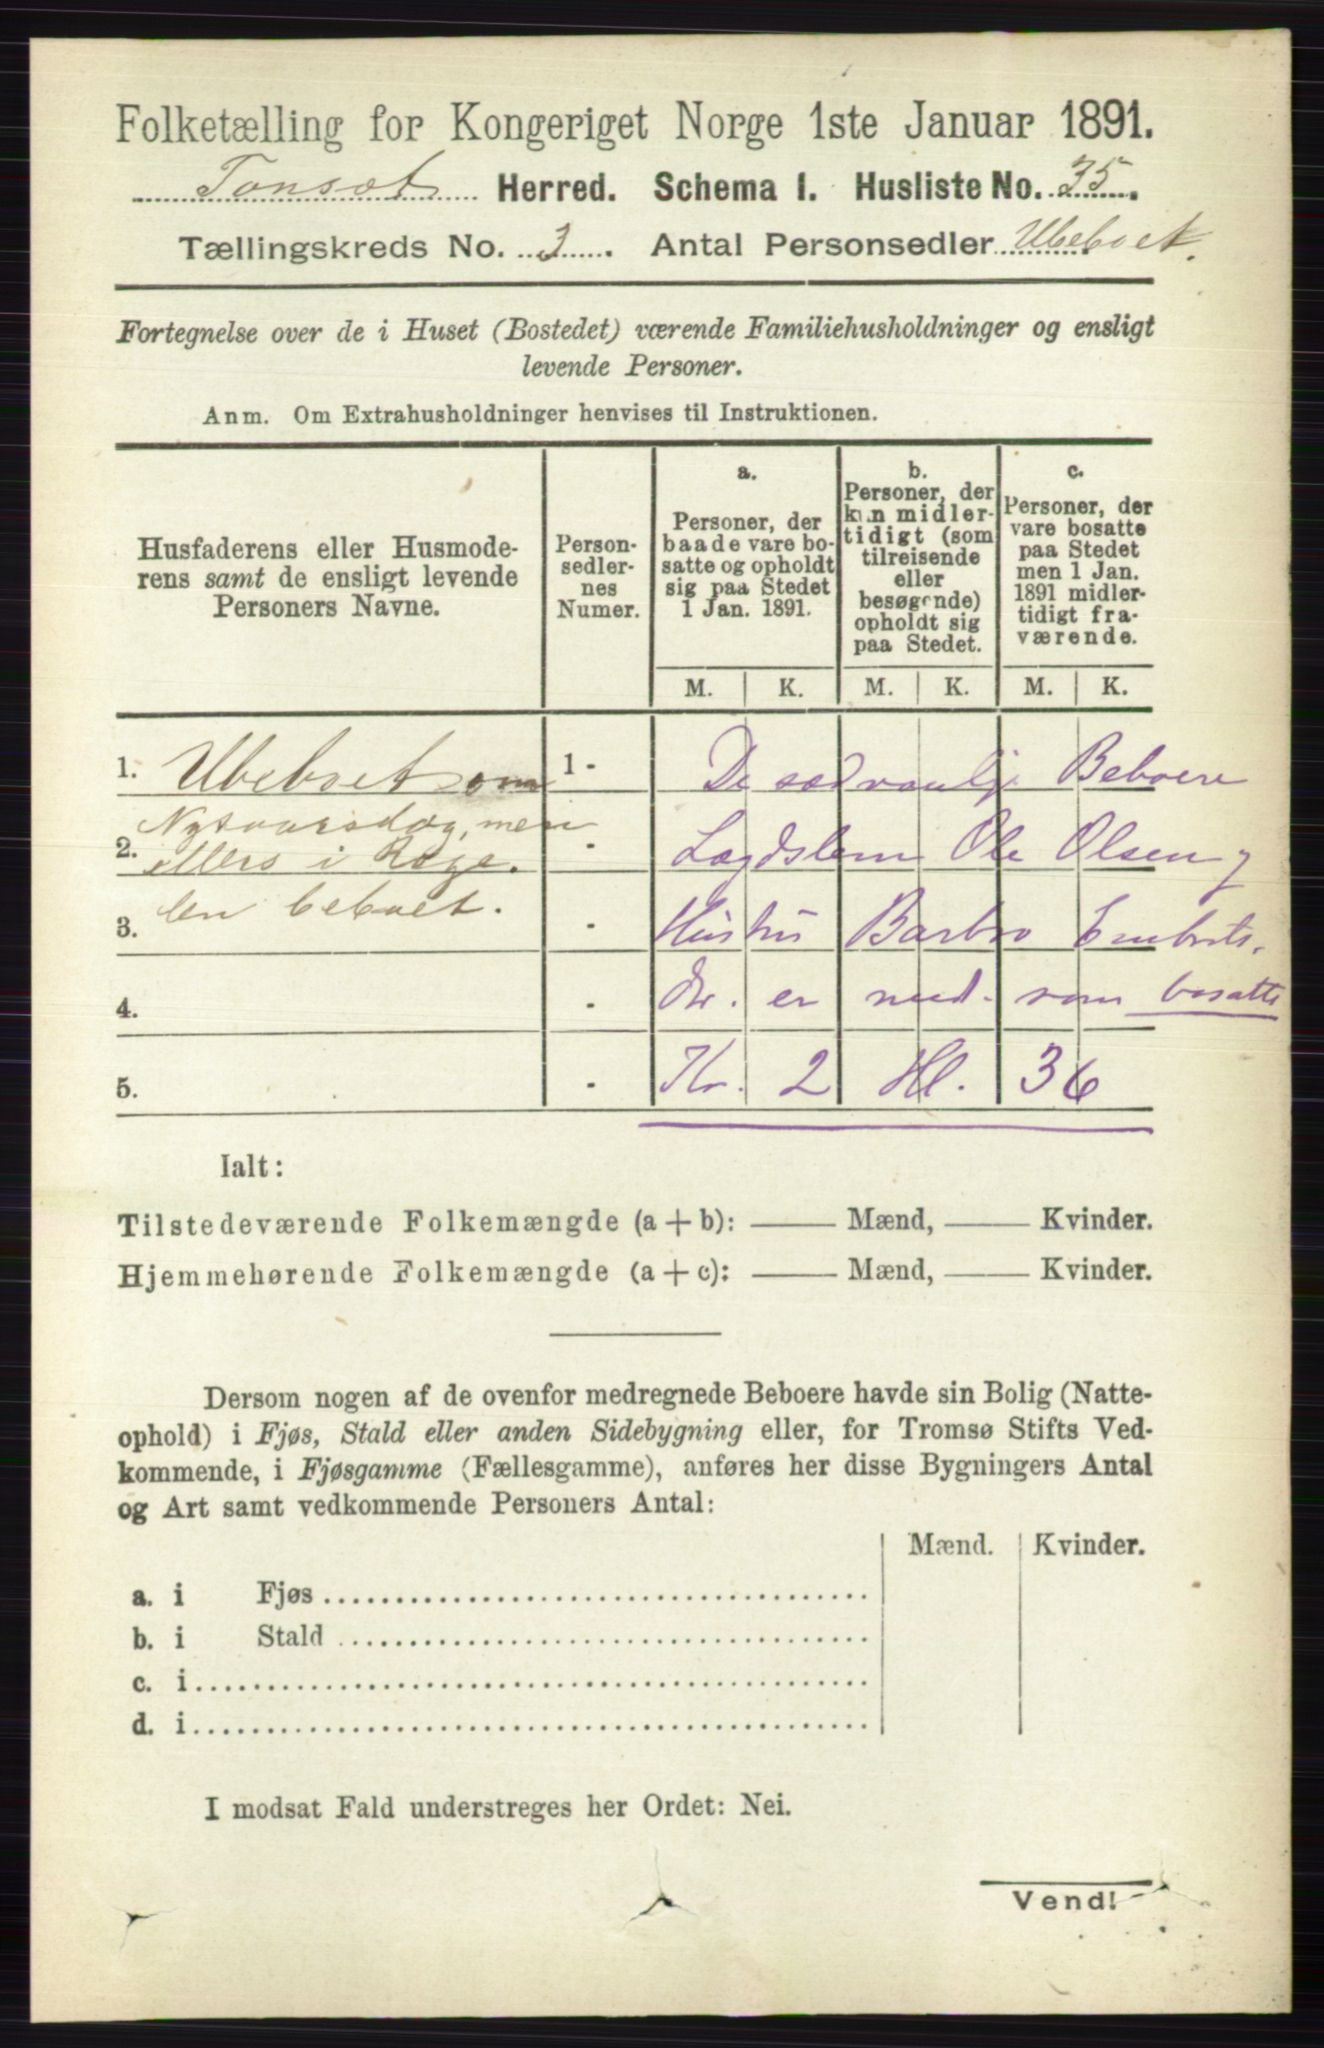 Folketælling for Kongeriget Norge 1ste Januar 1891.
Tonset Herred. Schema I. Husliste No. 35.
Tællingskreds No. 3. Antal Personsedler Ubeboet.
Fortegnelse over de i Huset (Bostedet) værende Familiehusholdninger og ensligt
levende Personer.
Anm. Om Extrahusholdninger henvises til Instruktionen.
Husfaderens eller Husmode-
rens samt de ensligt levende
Personers Navne.
Person-
sedler-
nes
Numer.
a.
Personer, der
baade vare bo-
satte og opholdt
sig paa Stedet
1 Jan. 1891.
b.
Personer, der
kun midler-
tidigt (som
tilreisende
eller
besøgende)
opholdt sig
paa Stedet.
c.
Personer, der
vare bosatte
paa Stedet
men 1 Jan.
1891 midler-
tidigt fra-
værende.
M. K. M. K. M. K.
1. Ubeboet om 1 - De sædvanlige Beboere
2. Nytaarsdag, men - Lægdslem Ole Olsen og
ellers i Rege.
3. len beboet. - Hustru Barbro Embrets.
4. - Dr. er medr. som bosatte
5. - Kr. 2 Hl. 36
Ialt:
Tilstedeværende Folkemængde (a + b): Mænd, Kvinder.
Hjemmehørende Folkemængde (a + c): Mænd, Kvinder.
Dersom nogen af de ovenfor medregnede Beboere havde sin Bolig (Natte-
ophold) i Fjøs, Stald eller anden Sidebygning eller, for Tromsø Stifts Ved-
kommende, i Fjøsgamme (Fællesgamme), anføres her disse Bygningers Antal
og Art samt vedkommende Personers Antal:
Mænd. Kvinder.
a. i Fjøs
b. i Stald
c. i
d. i
I modsat Fald understreges her Ordet: Nei.
Vend!